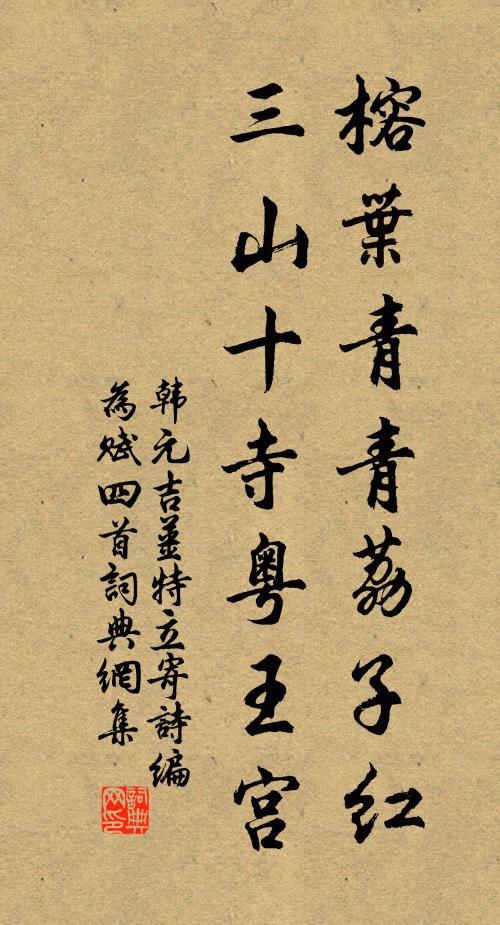 榕葉青青荔子红
三山十寺粤王宫
韩元吉姜特立寄詩編
為赋四首詞典網集
詞典網印